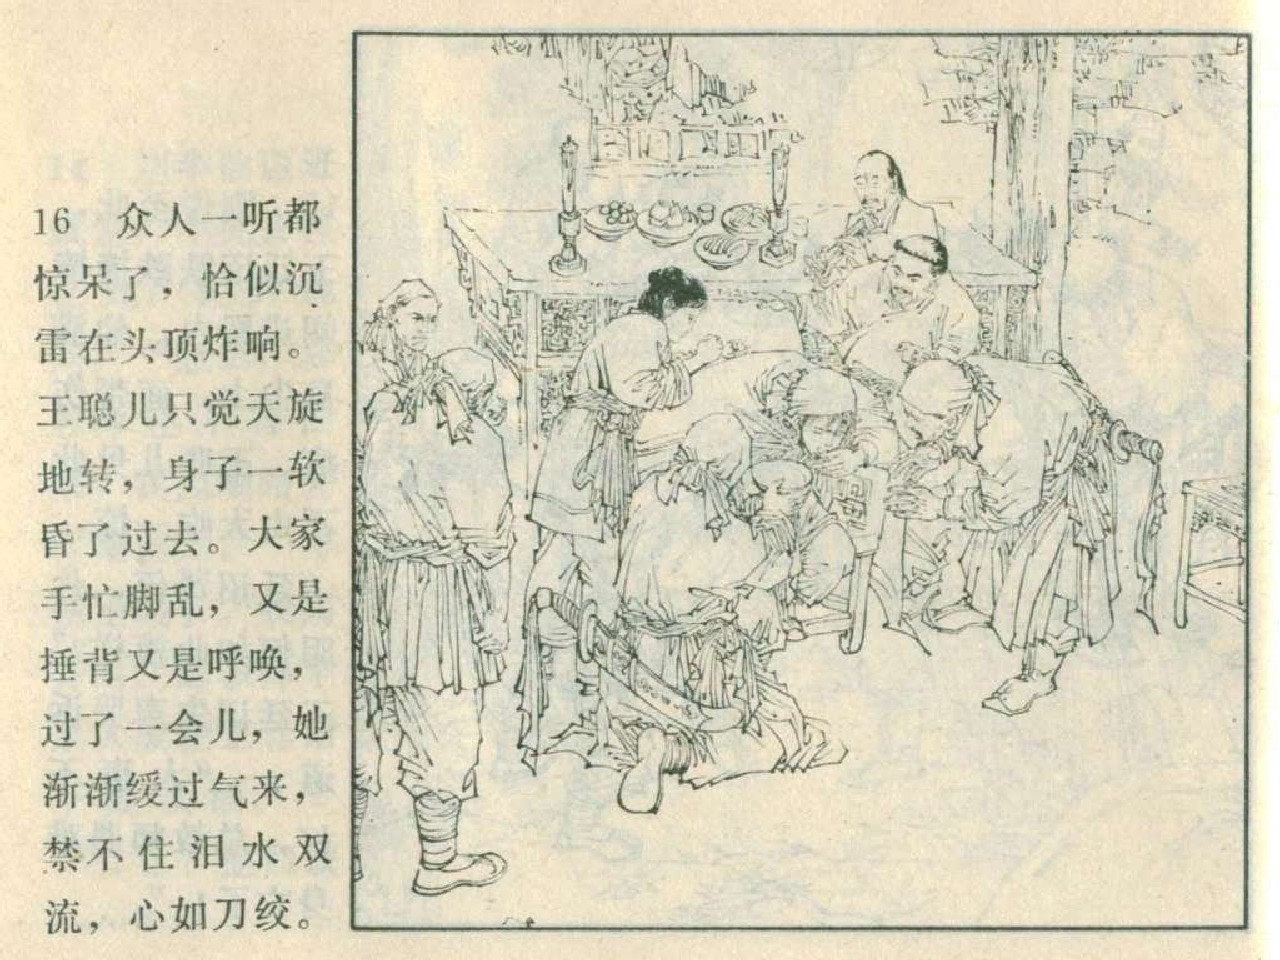 16 众人一听都
惊呆了，恰似沉
雷在头顶炸响。
王聪儿只觉天旋
地转，身子一软
昏了过去。大家
手忙脚乱，又是
捶背又是呼唤，
过了一会儿，她
渐渐缓过气来，
禁不住泪水双
流，心如刀绞。